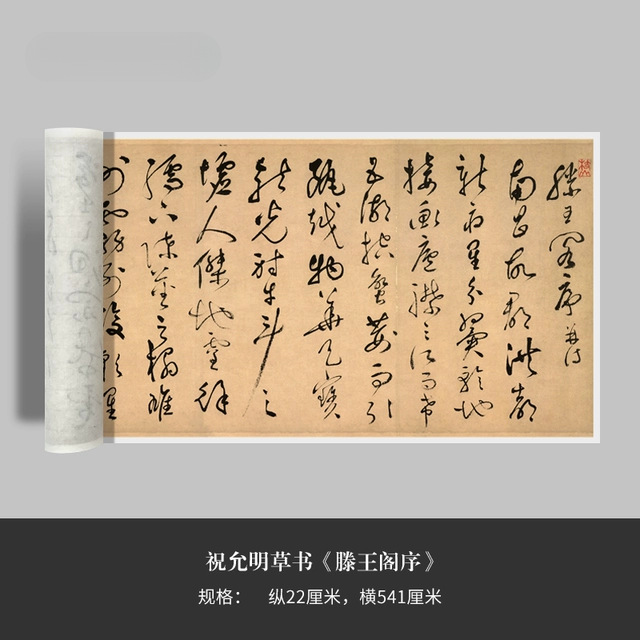 滕王閣序 并詩
南昌故郡洪都
新府星分翼軫地
接衡廬襟三江而帶
五湖控蠻荊而引
甌越物華天寶
龍光射牛斗之
墟人傑地靈徐
孺下陳蕃之榻雄
州霧列俊彩星
祝允明草书《滕王阁序》
规格： 纵22厘米，横541厘米